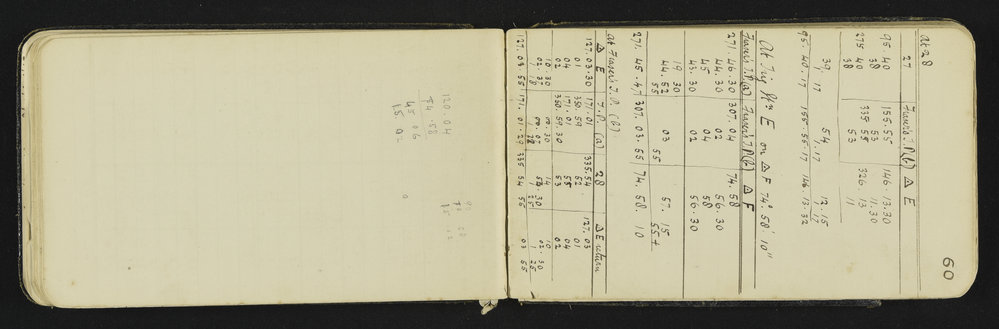 60
At 28
27 Fraser's T.P.(b) Δ E
95.40 155.55 146.13.30
38 53 11.30
275 40 335 55 326.13
38 53 11
39. 17 54. 17 12.15
1.17
95.40.17 155.55.17 146.13.32
At Trig Stn E on Δ F 74°.58'.10"
Fraser's T.P.(a) Fraser's T.P.(b) Δ F
271.46.30 307.04 74.58
44.30 02 56.30
45 04 58
43.30 02 56.30
19 30
44.52 03 57.15
55 55 55+
271.45.47 307.03.55 74.58.10
At Fraser's T.P.(b)
Δ E T.P.(a) 28 Δ E return
127.03.30 171.01 335.54 127.03
01 350.59 52 01
04 171.01 55 04
02 350.59.30 53 02
10 30 00.30 14 10
02.37 00.07 53.30 02.30
1 18 1 22 1 25 1 25
127.03 55 171.01.29 335 54 56 03 55
120 04
54.58
45 06
15 02
0